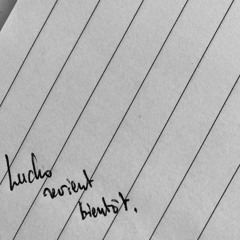 Lucho
revient
bientôt.